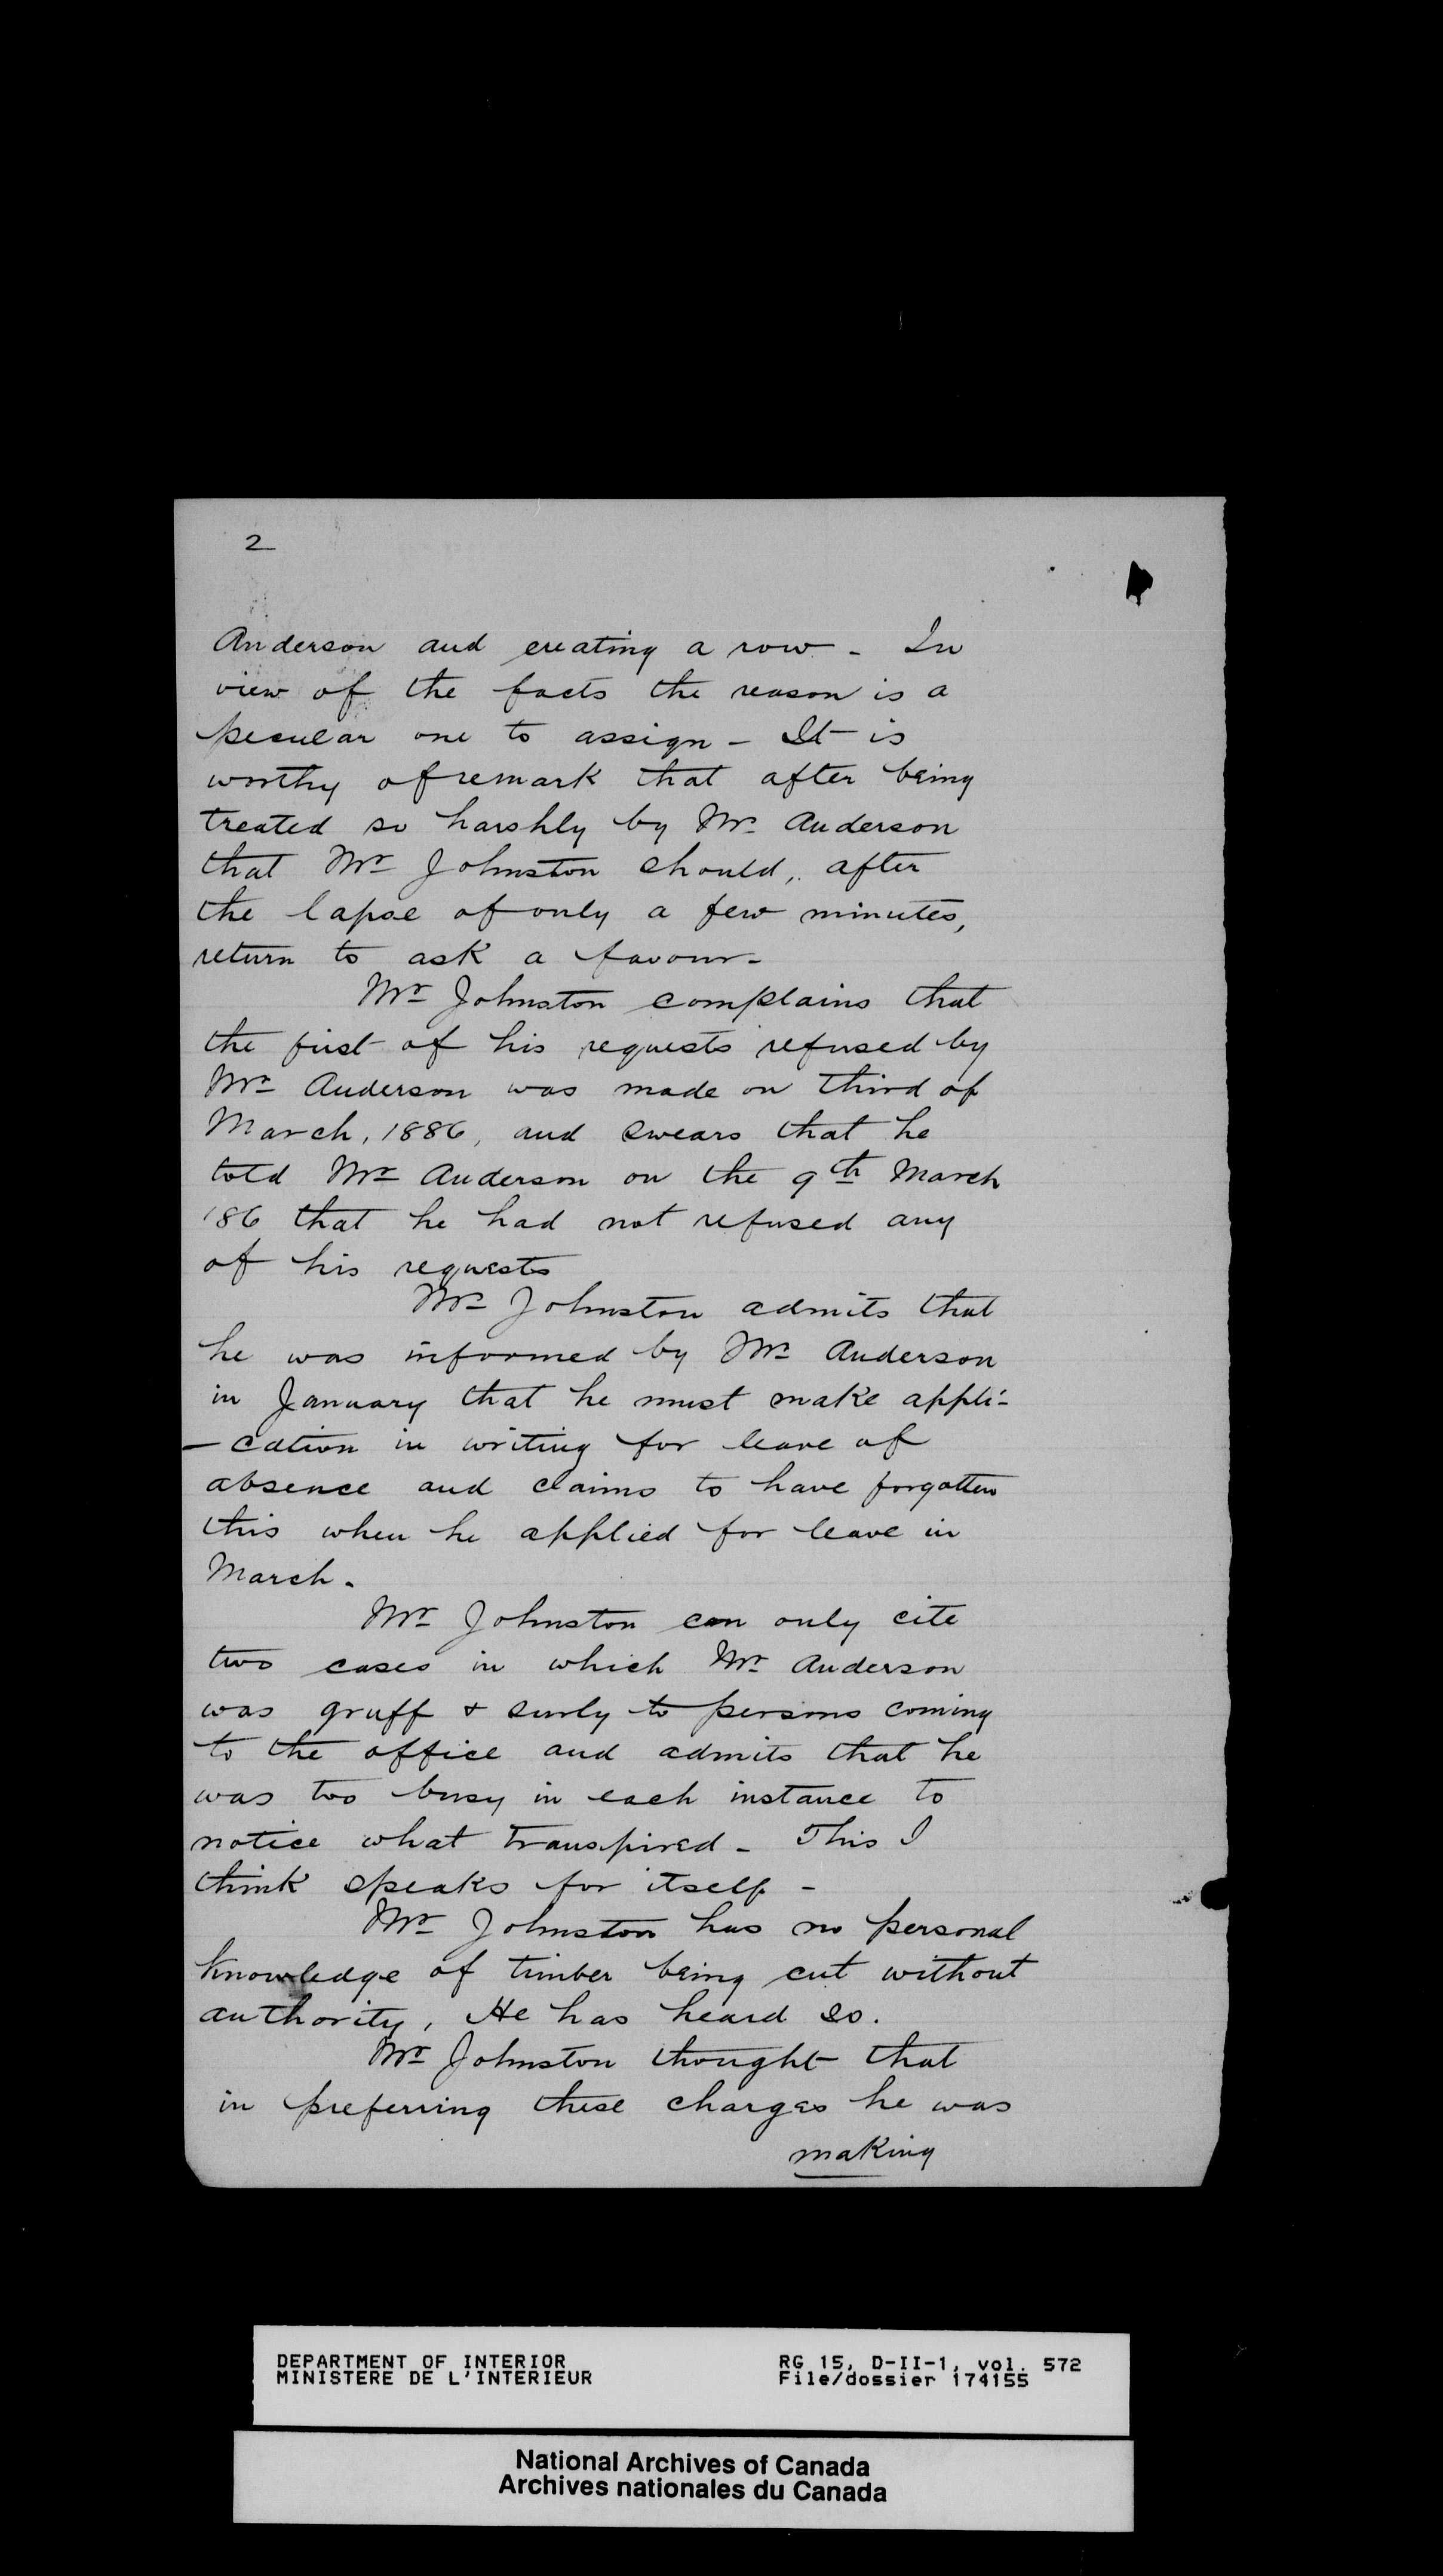 2
Anderson and creating a row - In
view of the facts the reason is a
peculiar one to assign - It is
worthy of remark that after being
treated so harshly by Mr Anderson
that Mr Johnston should, after
the lapse of only a few minutes,
return to ask a favour -
Mr Johnston complains that
the first of his requests refused by
Mr Anderson was made on third of
March, 1886, and swears that he
told Mr Anderson on the 9th March
'86 that he had not refused any
of his requests
Mr Johnston admits that
he was informed by Mr Anderson
in January that he must make appli-
-cation in writing for leave of
absence and claims to have forgotten
this when he applied for leave in
March.
Mr Johnston can only cite
two cases in which Mr Anderson
was gruff & surly to persons coming
to the office and admits that he
was too busy in each instance to
notice what transpired - This I
think speaks for itself -
Mr Johnston has no personal
knowledge of timber being cut without
authority, He has heard so.
Mr Johnston thought that
in preferring these charges he was
making
DEPARTMENT OF INTERIOR RG 15, D-II-1, vol. 572
MINISTERE DE L'INTERIEUR File/dossier 174155
National Archives of Canada
Archives nationales du Canada